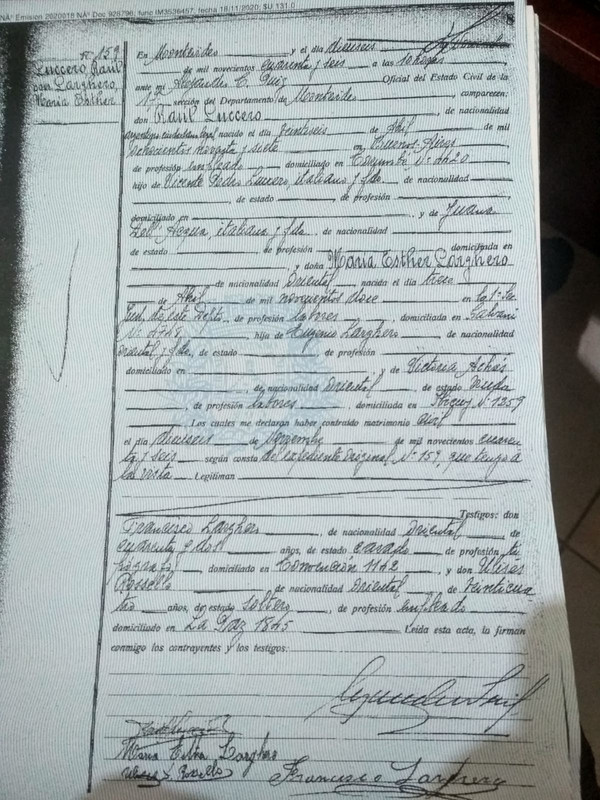 NÂº Emision 2020918 NÂº Doc 926796; func IM3536457; fecha 18/11/2020; $U 131.0
Nº 159
Luccero, Raúl
con Larghero,
María Esther
En Montevideo y el día dieciseis
de mil novecientos cuarenta y seis a las 10 horas
ante mí Alejandro C. Oficial del Estado Civil de la
17 sección del Departamento de Montevideo, comparecen:
don Raúl Luccero, de nacionalidad
nacido el día veintiseis de Abril de mil
ochocientos noventa y siete en Buenos Aires
de profesión empleado domiciliado en Nº 1420
hijo de Vicente Pedro Luccero, italiano y fdo. de nacionalidad
de estado, de profesión
domiciliado en, y de Juana
Dell' Acqua, italiana y fda. de nacionalidad
de estado de profesión domiciliada en
y doña María Esther Larghero
de nacionalidad Oriental nacida el día trece
de Abril de mil novecientos doce en la 1ª Sec
Jud. de este Depto. de profesión labores, domiciliada en Galvani
Nº 4748, hija de Eugenio Larghero de nacionalidad
Oriental y fdo., de estado de profesión
domiciliado en, y de Victoria Achás
de nacionalidad Oriental, de estado viuda
, de profesión labores, domiciliada en Nº 1259
Los cuales me declaran haber contraído matrimonio civil
el día dieciseis de Noviembre de mil novecientos cuaren
ta y seis según consta de expediente original Nº 159, que tengo a
la vista. Legitiman
Testigos: don
Francisco Larghero, de nacionalidad Oriental de
cuarenta y dos años, de estado casado de profesión ti
pógrafo, domiciliado en Convención 1142 y don Ulises
Rossello de nacionalidad Oriental de veinticua
tro años, de estado soltero, de profesión empleado
domiciliado en La Paz 1845 Leída esta acta, la firman
conmigo los contrayentes y los testigos:
María Esther Larghero
Ulises Rossello Francisco Larghero